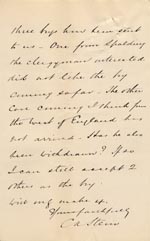 three boys have been sent
to us - One from Spalding
the clergyman interested
did not like the boy
coming so far - The other
case coming I think from
the West of England has
not arrived - Has he also
been withdrawn? If so
I can still accept 2
others as the boy
will only make up.
Yours faithfully